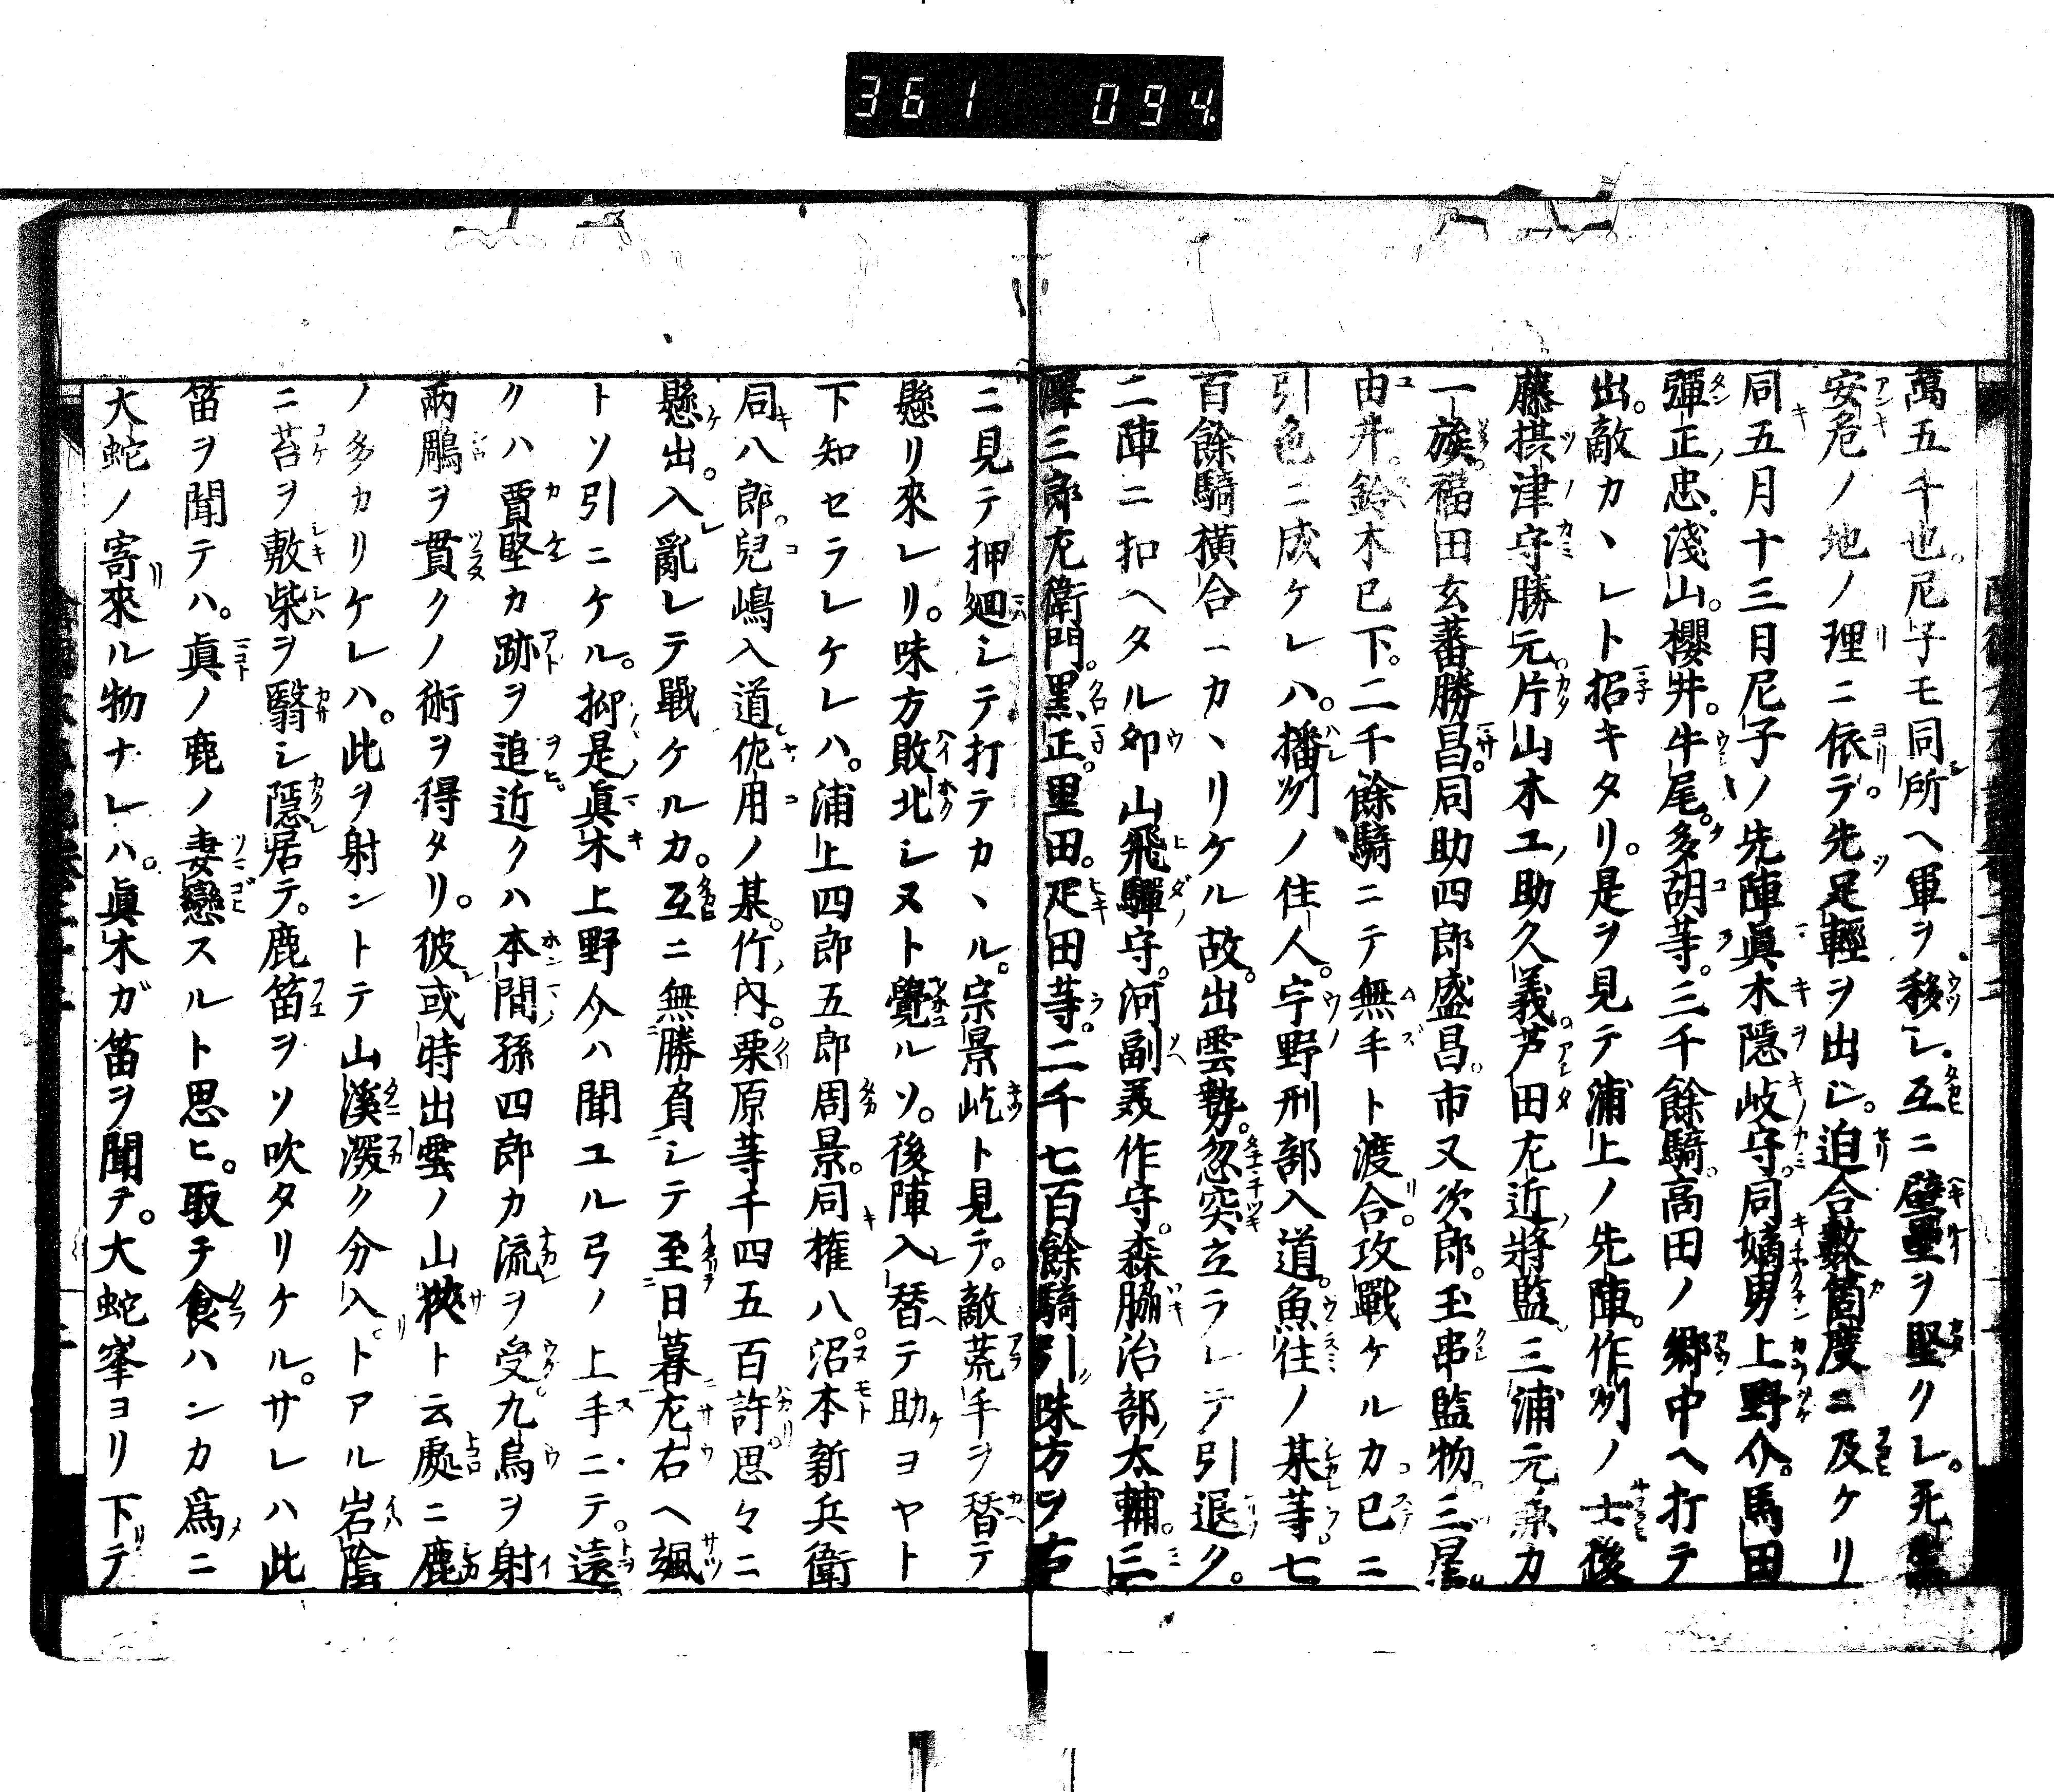 361 094
萬五千也。尼子モ同所ヘ軍ヲ移シ。互ニ壁壘ヲ堅クシ。死生
安危ノ地ノ理ニ依テ。先足輕ヲ出シ。迫合數箇度ニ及ケリ
同五月十三日尼子ノ先陣眞木隱岐守。同嫡男上野介。馬田
彈正忠。淺山。櫻井。牛尾。多胡等。三千餘騎。高田ノ郷中ヘ打テ
出。敵カヽレト招キタリ。是ヲ見テ浦上ノ先陣。作州ノ士後
藤摂津守勝元。片山木工助久義。芦田左近將監。三浦元兼カ
一族。福田玄蕃勝昌。同助四郎盛昌。市又次郎。玉串監物。三星。
由井。鈴木已下。二千餘騎ニテ無手ト渡合。攻戰ケルカ。已ニ
引色ニ成ケレハ。播州ノ住人。宇野刑部入道。魚住ノ某等。七
百餘騎横合ニカヽリケル故。出雲勢。忽突立ラレテ引退ク。
二陣ニ扣ヘタル卯山飛驒守。河副美作守。森脇治部太輔。三
澤三郎左衛門。黒正。里田。疋田等。二千七百餘騎引味方ヲ
ニ見テ押廻シテ打テカヽル。宗景屹ト見テ。敵荒手ヲ替テ
懸リ來レリ。味方敗北シヌト覺ルソ。後陣入替テ助ヨヤト
下知セラレケレハ。浦上四郎五郎周景。同権八。沼本新兵衛
同八郎。兒嶋入道。佐用ノ某。竹内。栗原等千四五百許。思々ニ
懸出。入亂レテ戰ケルカ。互ニ無勝負シテ至日暮左右ヘ颯
トソ引ニケル。抑是眞木上野介ハ聞ユル弓ノ上手ニテ。遠
クハ賈堅カ跡ヲ追。近クハ本間孫四郎カ流ヲ受。九烏ヲ射
兩鵰ヲ貫クノ術ヲ得タリ。彼或時出雲ノ山狹ト云處ニ鹿
ノ多カリケレハ。此ヲ射ントテ山溪深ク分入。トアル岩陰
ニ苔ヲ敷柴ヲ翳シ隱居テ。鹿笛ヲソ吹タリケル。サレハ此
笛ヲ聞テハ。眞ノ鹿ノ妻戀スルト思ヒ。取テ食ハンカ爲ニ
大蛇ノ寄來ル物ナレハ。眞木ガ笛ヲ聞テ。大蛇峯ヨリ下テ